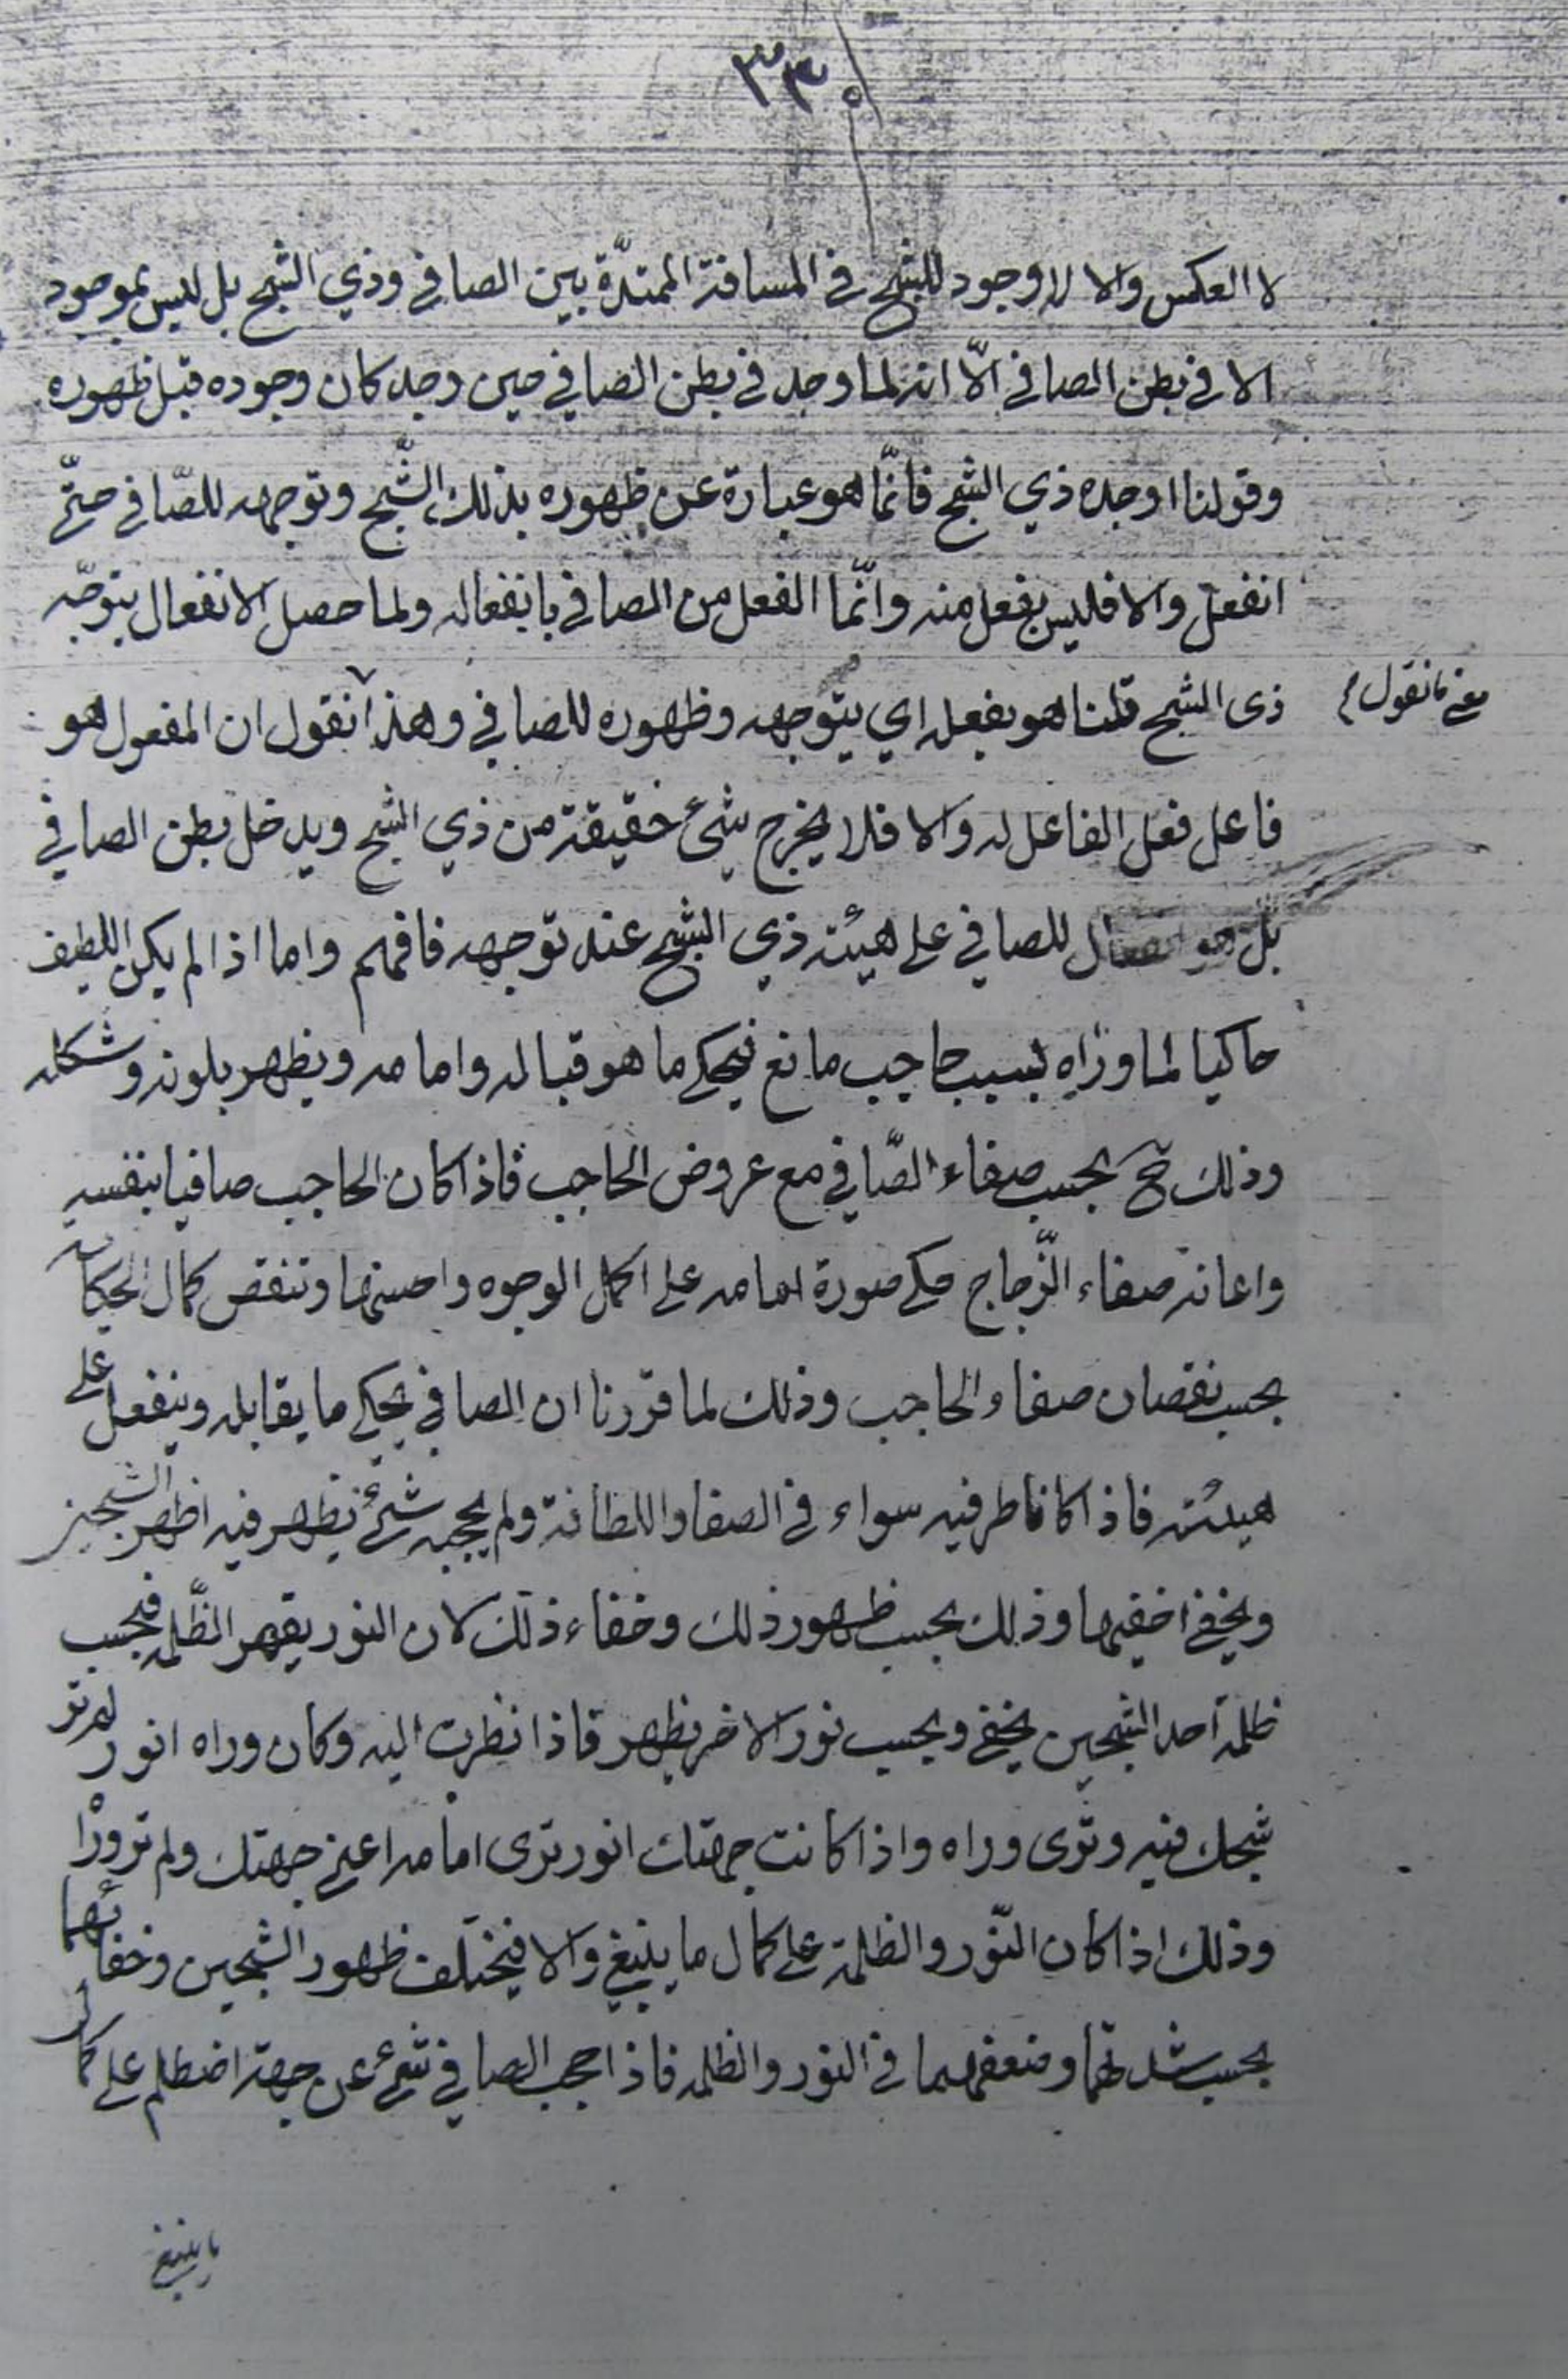 ٣٣٠
لا العكس والا لا وجود للشبح في المسافة الممتدّة بين الصافي وذي الشبح بل ليس بموجود
الا في بطن الصافي الّا انه لما وجد في بطن الصافي حين وجد كان وجوده قبل ظهوره
وقولنا اوجده ذي الشبح فانّما هو عبارة عن ظهوره بذلك الشّبح وتوجهه للصّافي حتّى
انفعل والا فليس بفعل منه وانّما الفعل من الصافي بانفعاله ولما حصل الانفعال بتوجّه
ذى الشبح قلنا هو بفعله اي بتوجهه وظهوره للصافي وهذا نقول ان المفعول هو
معنى ما نقول م
فاعل فعل الفاعل له والا فلا يخرج شيئ حقيقة من ذي الشبح ويدخل بطن الصافي
بل هو انفعال للصافي على هيئة ذي الشبح عند توجهه فافهم واما اذا لم يكن اللطيف
حاكيا لما وراه بسبب حاجب مانع فيحكي ما هو قباله وامامه ويظهر بلونه وشكله
وذلك ح بحسب صفاء الصّافي مع عروض الحاجب فاذا كان الحاجب صافيا بنفسه
واعانه صفاء الزّجاج حكى صورة امامه على اكمل الوجوه واحسنها وتنقص كمال الحكاية
بحسب نقصان صفاء الحاجب وذلك لما قرّرنا ان الصافي يحكي ما يقابله وينفعل على
هيئته فاذا كانا طرفيه سواء في الصفا واللطافة ولم يحجبه شيئ يظهر فيه اظهر الشبحين
ويخفي اخفيهما وذلك بحسب ظهور ذلك وخفاء ذلك لان النور يقهر الظّلمة فبحسب
ظلمة احد الشبحين يخفي وبحسب نور الاخر يظهر فاذا نظرت اليه وكان وراه انور لم تر
شبحك فيه وترى وراه واذا كانت جهتك انور ترى امامه اعني جهتك ولم تر وراه
وذلك اذا كان النّور والظلمة على كمال ما ينبغي والا فيختلف ظهور الشبحين وخفائهما
بحسب شدتهما وضعفهما في النور والظلمه فاذا حجب الصافي شيئ عن جهة اضطلم على كمال
ما ينبغي